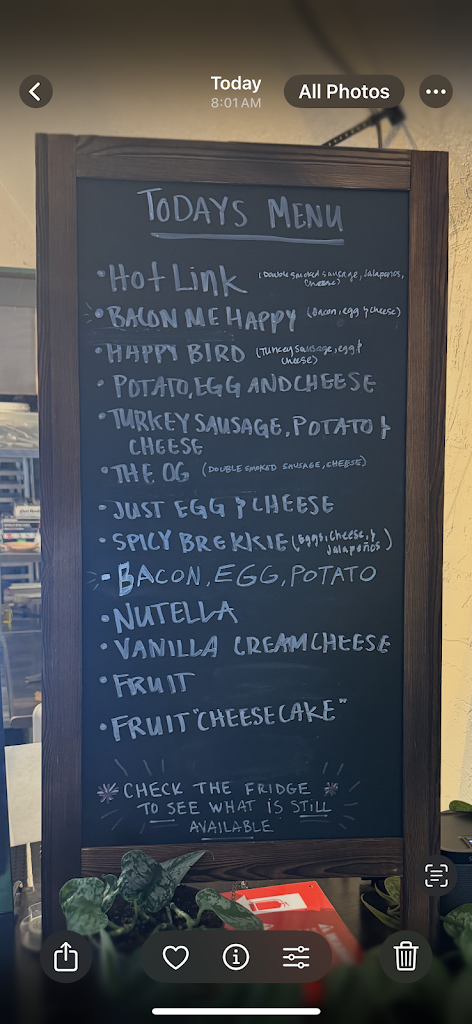 Today
8:01 AM
All Photos
TODAYS MENU
• Hot Link (Double smoked sausage, Jalapeños,
Cheese)
• BACON ME HAPPY (Bacon, egg & cheese)
• HAPPY BIRD (Turkey sausage, egg &
cheese)
• POTATO, EGG AND CHEESE
• TURKEY SAUSAGE, POTATO &
CHEESE
• THE OG (DOUBLE SMOKED SAUSAGE, CHEESE)
• JUST EGG & CHEESE
• SPICY BREKKIE (Eggs, Cheese, &
Jalapeños)
- BACON, EGG, POTATO
• NUTELLA
• VANILLA CREAMCHEESE
• FRUIT
• FRUIT "CHEESECAKE"
CHECK THE FRIDGE
TO SEE WHAT IS STILL
AVAILABLE